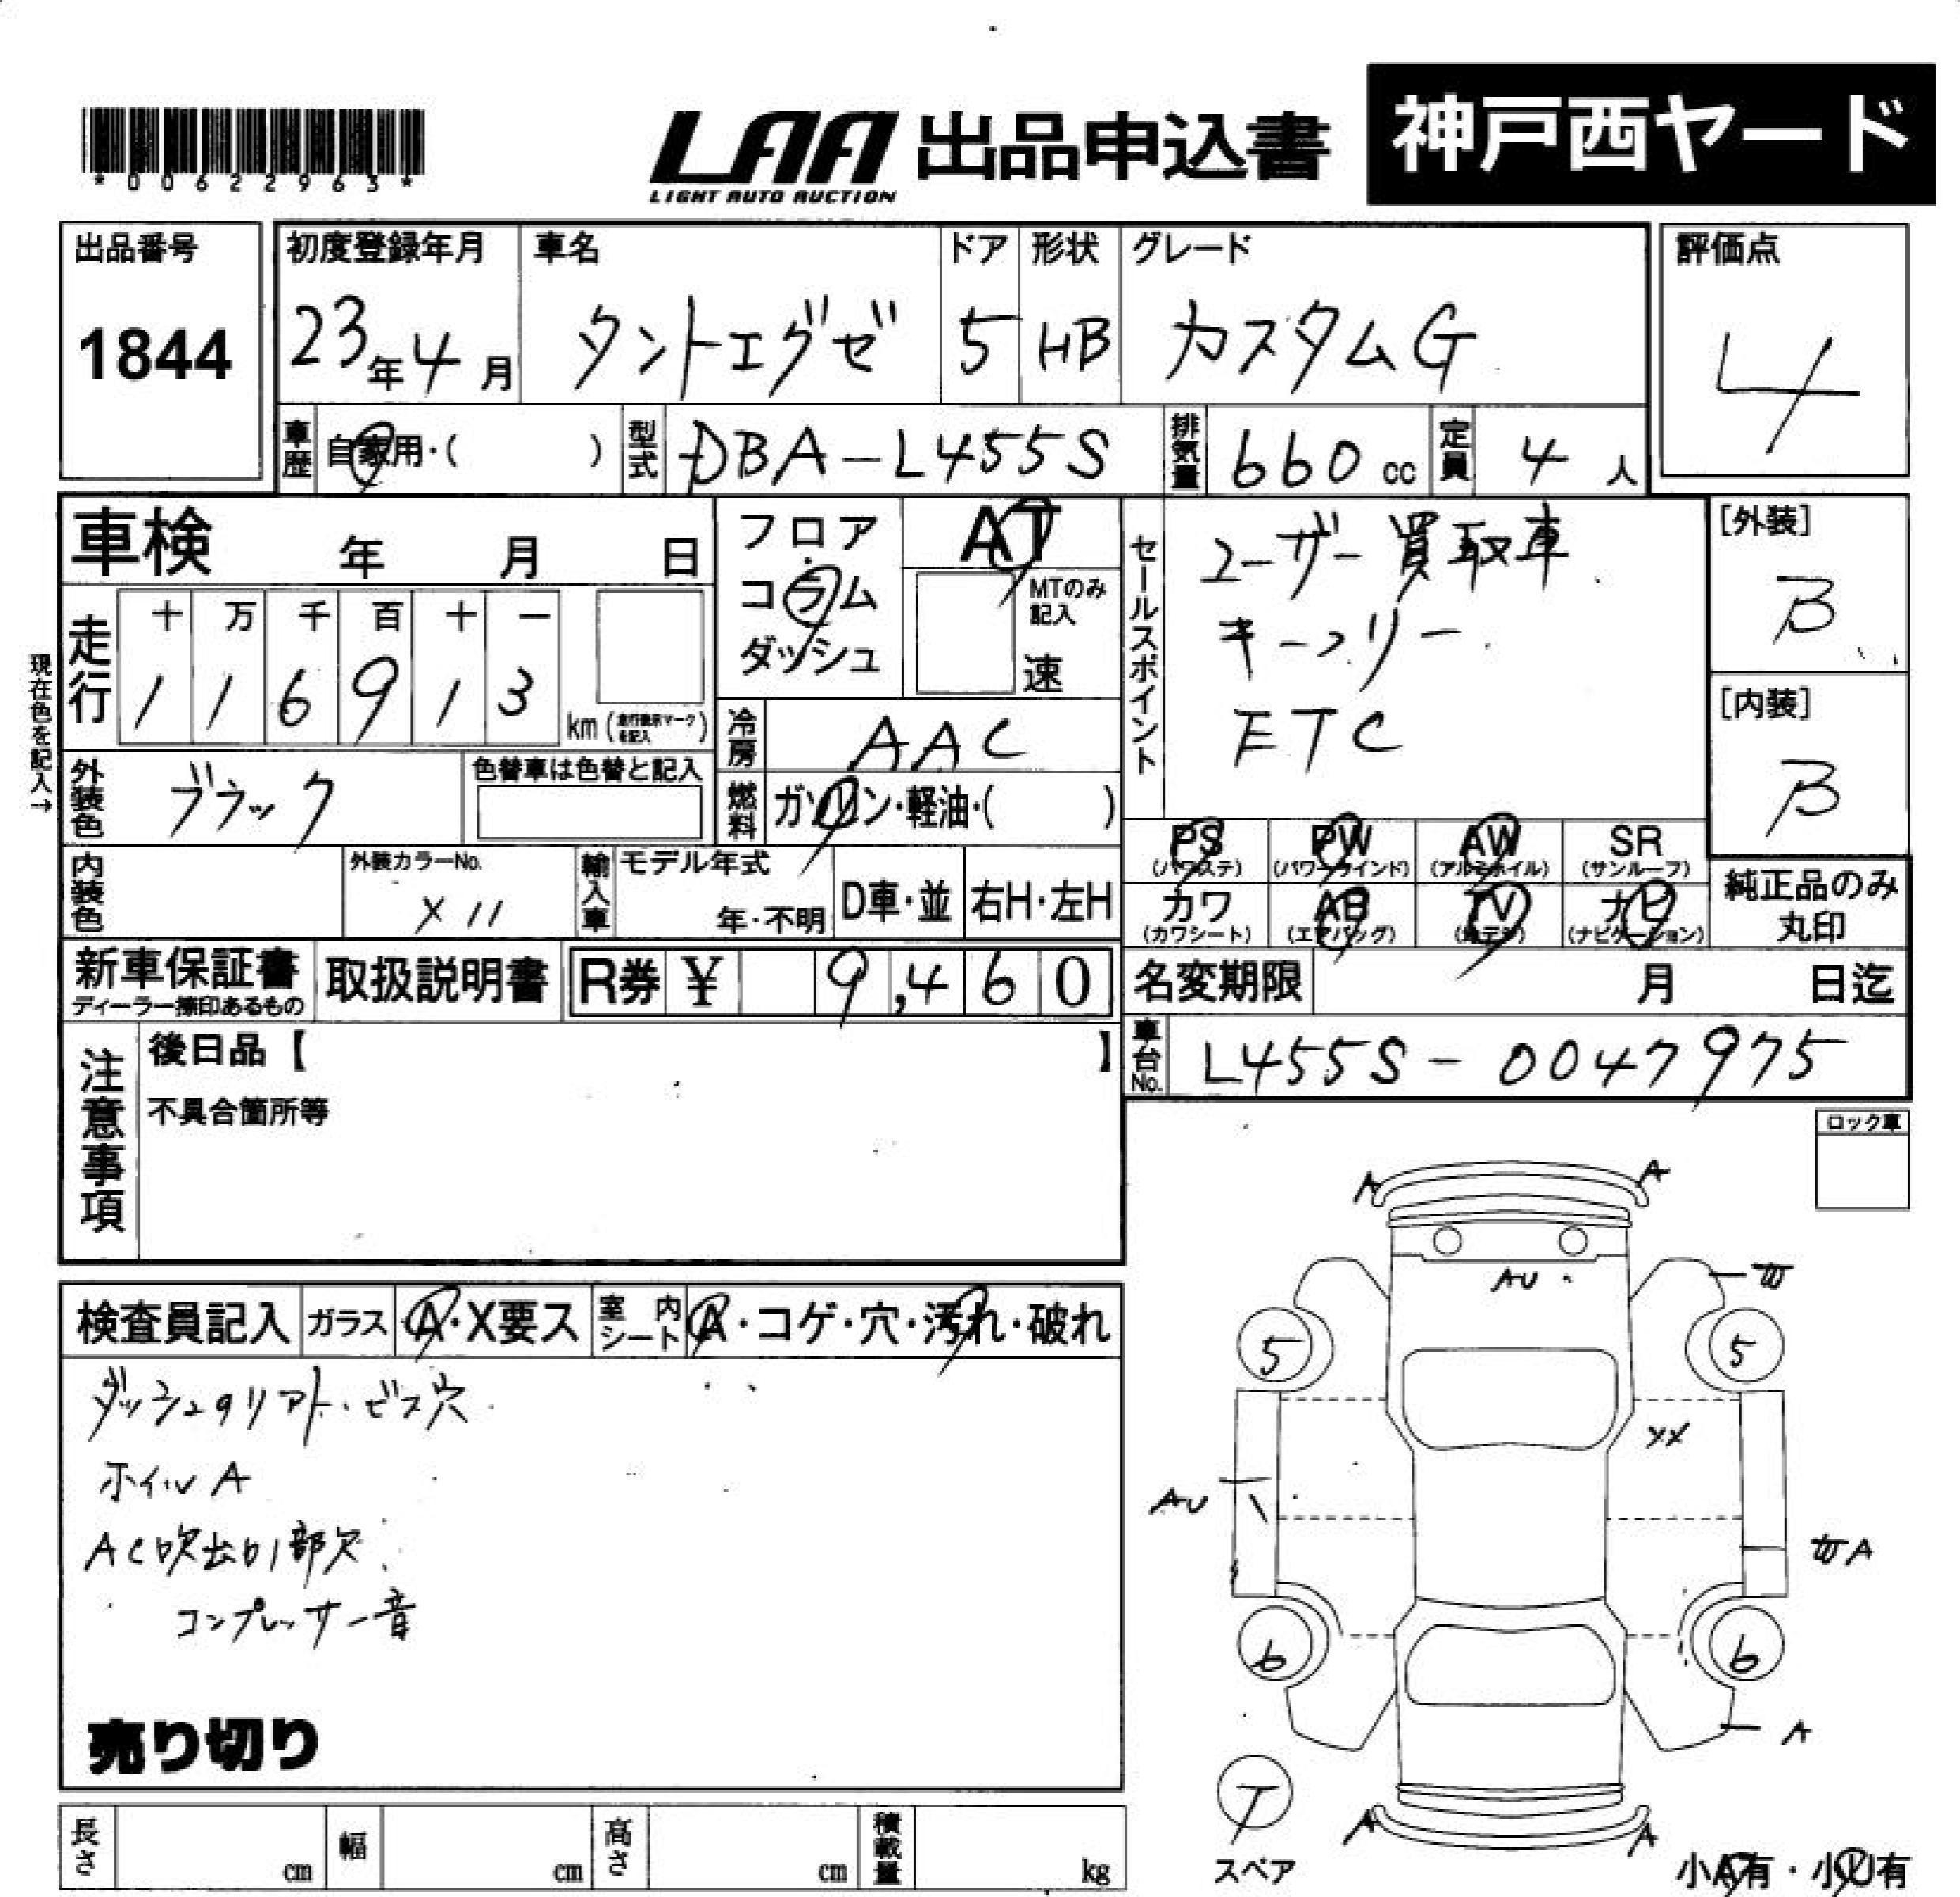 *00622963*
LAA 出品申込書 神戸西ヤード
LIGHT AUTO AUCTION
出品番号 1844
初度登録年月 23年4月
車名 タントエグゼ
ドア 5
形状 HB
グレード カスタムG
評価点 4
車歴 自家用・( )
型式 DBA-L455S
排気量 660 cc
定員 4 人
車検 年 月 日
フロア・コラム ダッシュ
AT
MTのみ記入
速
セールスポイント
ユーザー買取車
キーフリー
ETC
[外装] B
[内装] B
現在色を記入→
走行 十 万 千 百 十 一
1 1 6 9 1 3 km (走行表示マークを記入)
冷房 AAC
外装色 ブラック
色替車は色替と記入
燃料 ガソリン・軽油・( )
PS (パワステ) PW (パワーウインド) AW (アルミホイル) SR (サンルーフ)
カワ (カワシート) AB (エアバッグ) TV (地デジ) ナビ (ナビゲーション)
純正品のみ丸印
内装色
外装カラーNo. X11
輸入車 モデル年式 年・不明 D車・並 右H・左H
新車保証書 ディーラー捺印あるもの
取扱説明書
R券 ¥ 9,460
名変期限 月 日迄
車台No. L455S-0047975
注意事項
後日品【 】
不具合箇所等
ロック車
検査員記入 ガラス A・X要ス 室内シート A・コゲ・穴・汚れ・破れ
ホイルA
AC吹出口1部欠
コンプレッサー音
売り切り
A A
AU
5 5
XX
AU
A
6 6
A
T
スペア
A A
小A有・小U有
長さ cm 幅 cm 高さ cm 積載量 kg